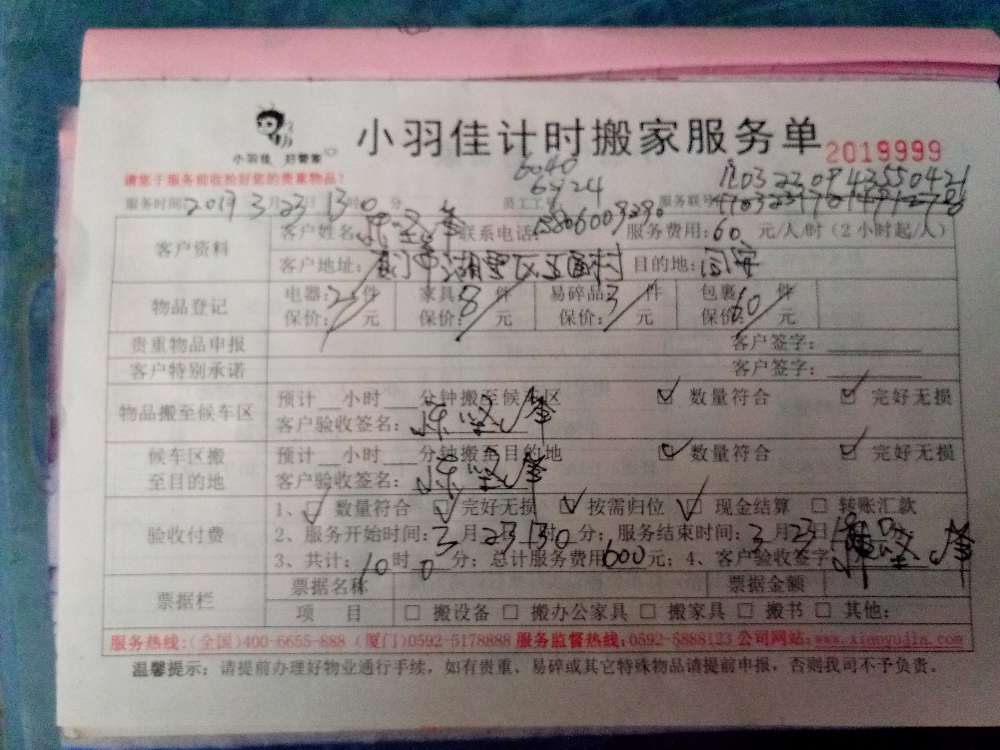 小羽佳 好管家
小羽佳计时搬家服务单
2019999
请您于服务前收捡好您的贵重物品!
6040
6424
服务时间:2019年3月23日13时0分 员工工号: 服务联号:
客户资料 客户姓名: 联系电话: 服务费用:60元/人/时(2小时起/人)
客户地址:厦门市湖里区五通村 目的地:同安
物品登记 电器:2件 家具:8件 易碎品:3件 包裹:60件
保价: 元 保价: 元 保价: 元 保价: 元
贵重物品申报 客户签字:
客户特别承诺 客户签字:
物品搬至候车区 预计 小时 分钟搬至候车区 数量符合 完好无损
客户验收签名:
候车区搬至目的地 预计 小时 分钟搬至目的地 数量符合 完好无损
客户验收签名:
验收付费 1、 数量符合 完好无损 按需归位 现金结算 转账汇款
2、服务开始时间:3月23日13时0分;服务结束时间:3月23日
3、共计:10时0分;总计服务费用600元;4、客户验收签字
票据栏 票据名称 票据金额
项目 搬设备 搬办公家具 搬家具 搬书 其他:
服务热线:(全国)400-6655-888 (厦门)0592-5178888 服务监督热线:0592-5888123 公司网站:www.xiaoyujia.com
温馨提示:请提前办理好物业通行手续,如有贵重、易碎或其它特殊物品请提前申报,否则我司不予负责。